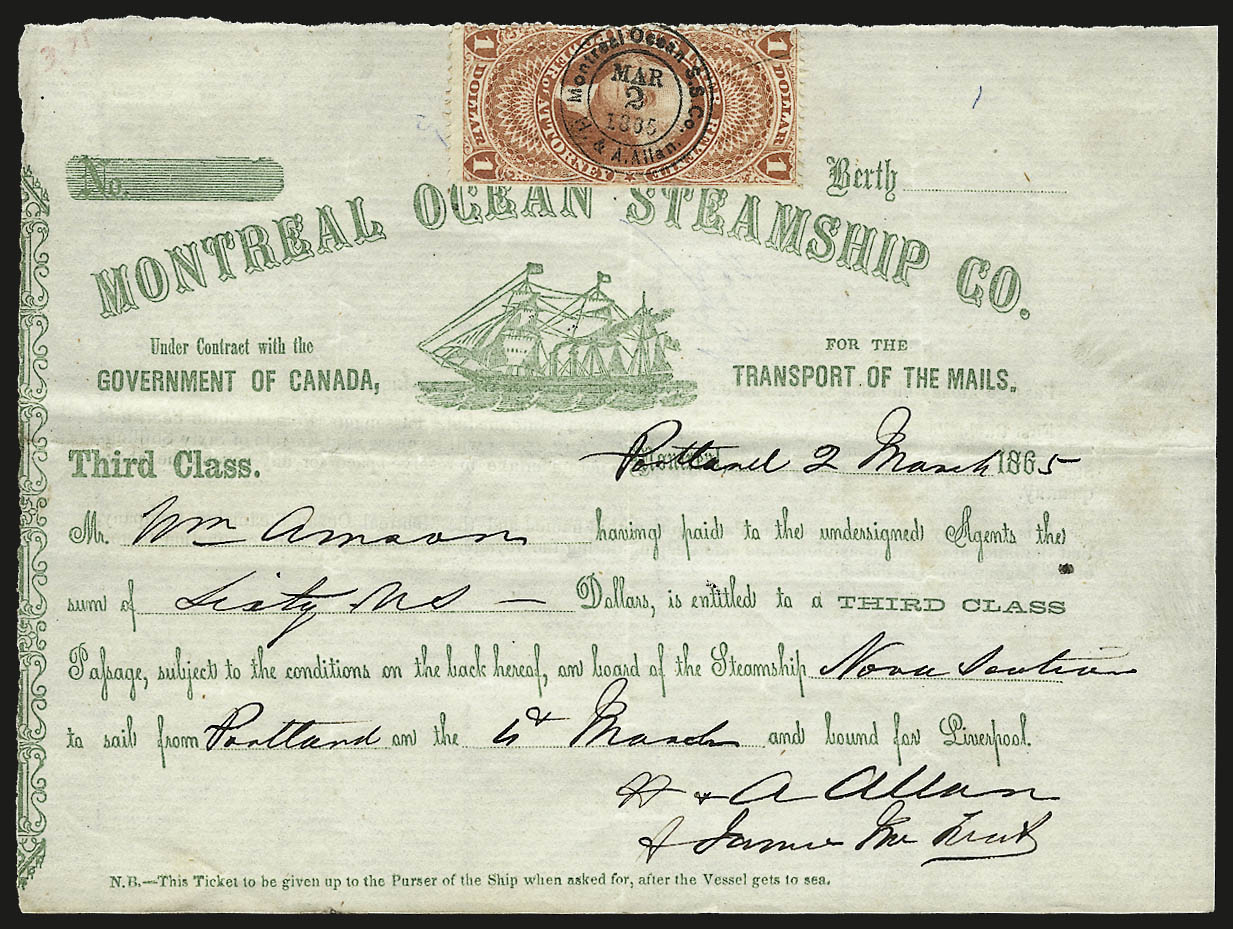 1 DOLLAR 1 DOLLAR
POWER OF ATTORNEY
Montreal Ocean S.S Co.
MAR
2
1865
H. & A. Allan.
No.
Berth
MONTREAL OCEAN STEAMSHIP CO.
Under Contract with the
GOVERNMENT OF CANADA,
FOR THE
TRANSPORT OF THE MAILS.
Portland 2 March 1865
Third Class.
Mr. Wm having paid to the undersigned Agents the
sum of Sixty Dollars, is entitled to a THIRD CLASS
Passage, subject to the conditions on the back hereof, on board of the Steamship Nova Scotian
to sail from Portland on the March and bound for Liverpool.
H & A Allan
James
N.B.—This Ticket to be given up to the Purser of the Ship when asked for, after the Vessel gets to sea.